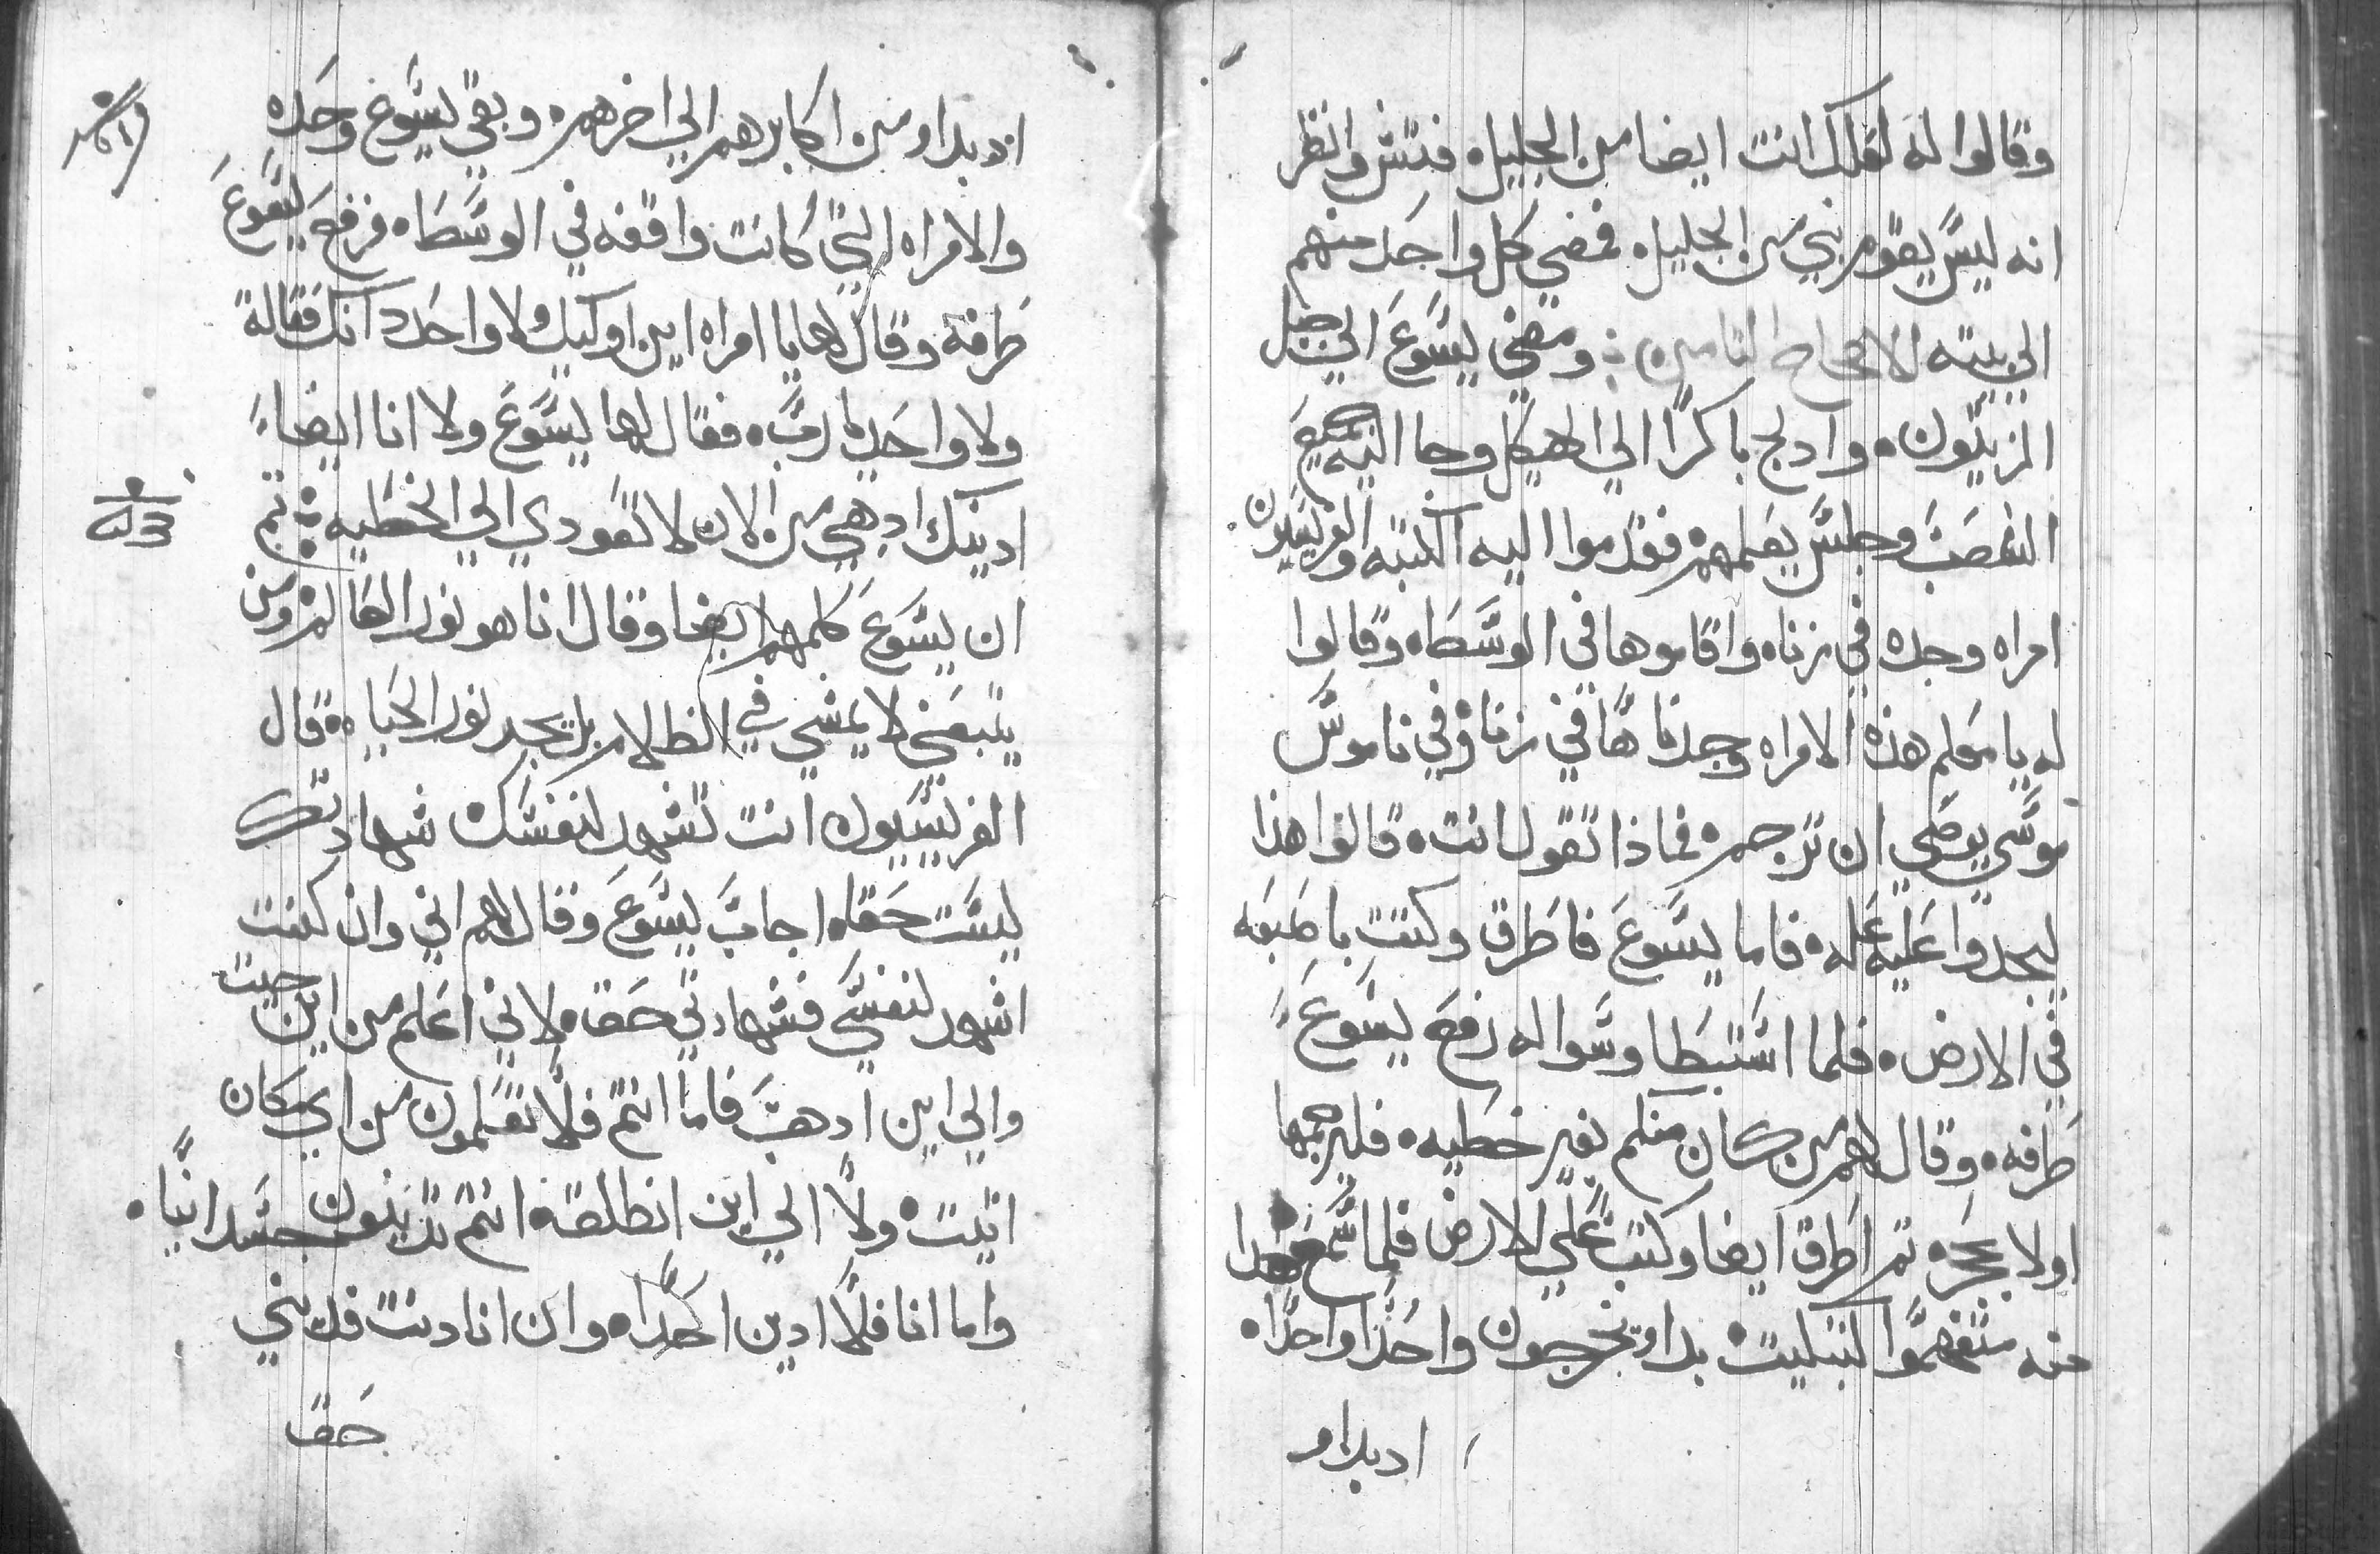 وقالوا له لعلك انت ايضا من الجليل فتش وانظر
انه ليس يقوم نبي من الجليل فمضي كل واحد منهم
الي بيته الاصحاح التامن ومضي يسوع الي جبل
الزيتون وادلج باكرا الي الهيكل وجا اليه جميع
الشعب وجلس يعلمهم فقدموا اليه الكتبه والفريسيين
امراه وجده في زناه واقاموها في الوسطاه وقالوا
له يا معلم هذه الامراه وجدناها في زناه وفي ناموس
موسي يوصي ان ترجم فماذا تقول انت قالوا هذا
ليجدوا عليه عله فاما يسوع فاطرق وكتب باصبعه
في الارض فلما استبطا وسواله رفع يسوع
طرفه وقال لهم من كان منكم بغير خطيه فليرجمها
اولا بحجره تم اطرق ايضا وكتب علي الارض فلما سمعوا هدا
منه متفهموا لتبكيت بداو يخرجون واحدا واحدا
ادبداو
ادبداو من اكابرهم الي اخرهم وبقي يسوع وحده
والامراه التي كانت واقفه في الوسطاه فرفع يسوع
طرفه وقال لها يا امراه اين اوليك ولا واحد دانك فقالة
ولا واحد يارب فقال لها يسوع ولا انا ايضا
ادينك ادهبي من الان لا تعودي الي الخطيه تم
ان يسوع كلمهم ايضا وقال انا هو نور العالم ومن
يتبعني لا يمشي في الظلام بل يجد نور الحياه قال
الفريسيون انت تشهد لنفسك شهادتك
ليست حقا اجاب يسوع وقال لهم اني وان كنت
اشهد لنفسي فشهادتي حق لاني اعلم من اين جيت
والي اين ادهب فاما انتم فلا تعلمون من اي مكان
اتيت ولا الي اين انطلقة انتم تدينون جسدانيا
واما انا فلا ادين احدا وان انا دنت فديني
حق